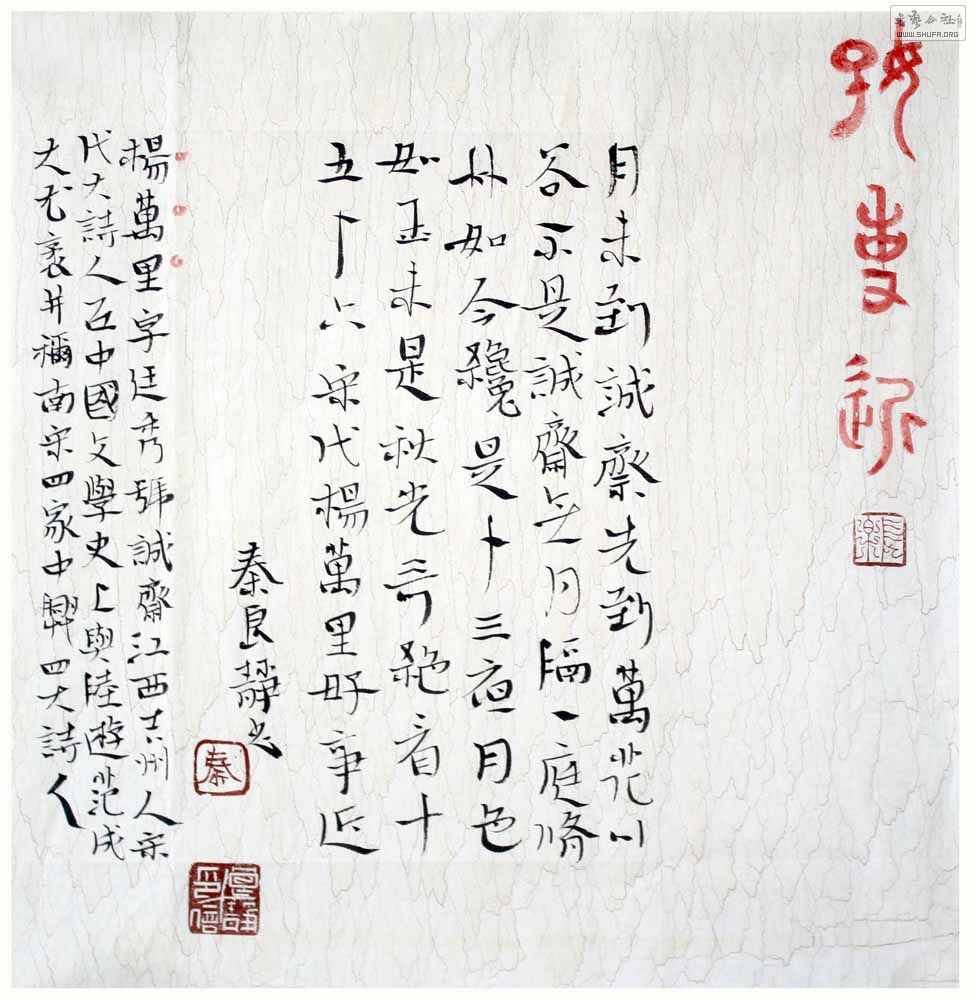 書藝公社
WWW.SHUFA.ORG
好事近
月未到誠齋先到萬花川
谷不是誠齋无月隔一庭脩
竹如今纔是十三夜月色
如玉未是秋光奇絕看十
五十六宋代楊萬里好事近
秦良靜书
秦
楊萬里字廷秀號誠齋江西吉州人宋
代大詩人在中國文學史上與陸遊范成
大尤袤并稱南宋四家中興四大詩人